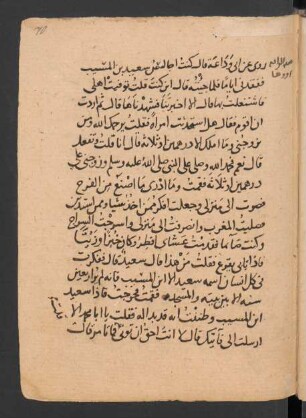 روى عن ابى وداعة قال كنت اجالس سعيد بن المسيب
ففقدنى اياما فلما جيته قال اين كنت قلت توفيت اهلى
فاشتغلت بها قال الا اخبرتنا فشهدناها قال ثم اردت
ان اقوم فقال هل استحدثت امراة فقلت يرحمك الله ومن
يزوجنى وما املك الا درهمين او ثلاثة فقال انا فقلت وتفعل
قال نعم فحمد الله وصلى على النبى صلى الله عليه وسلم وزوجنى على
درهمين او ثلاثة فقمت وما ادرى ما اصنع من الفرح
فصرت الى منزلى وجعلت افكر ممن اخذ شيا وممن استدين
فصليت المغرب وانصرفت الى منزلى واسرجت السراج
وكنت صايما فقدمت عشاى افطر وكان خبزا وزيتا
فاذا بابى يقرع فقلت من هذا قال سعيد قال ففكرت
فى كل انسان اسمه سعيد الا ابن المسيب فانه لم ير اربعين
سنه الا بين بيته والمسجد فقمت فخرجت فاذا سعيد
ابن المسيب وظننت انه قد بدا له فقلت يا ابا محمد الا
ارسلت الى فآتيك قال لا انت احق ان توتى قال فما تامر قال